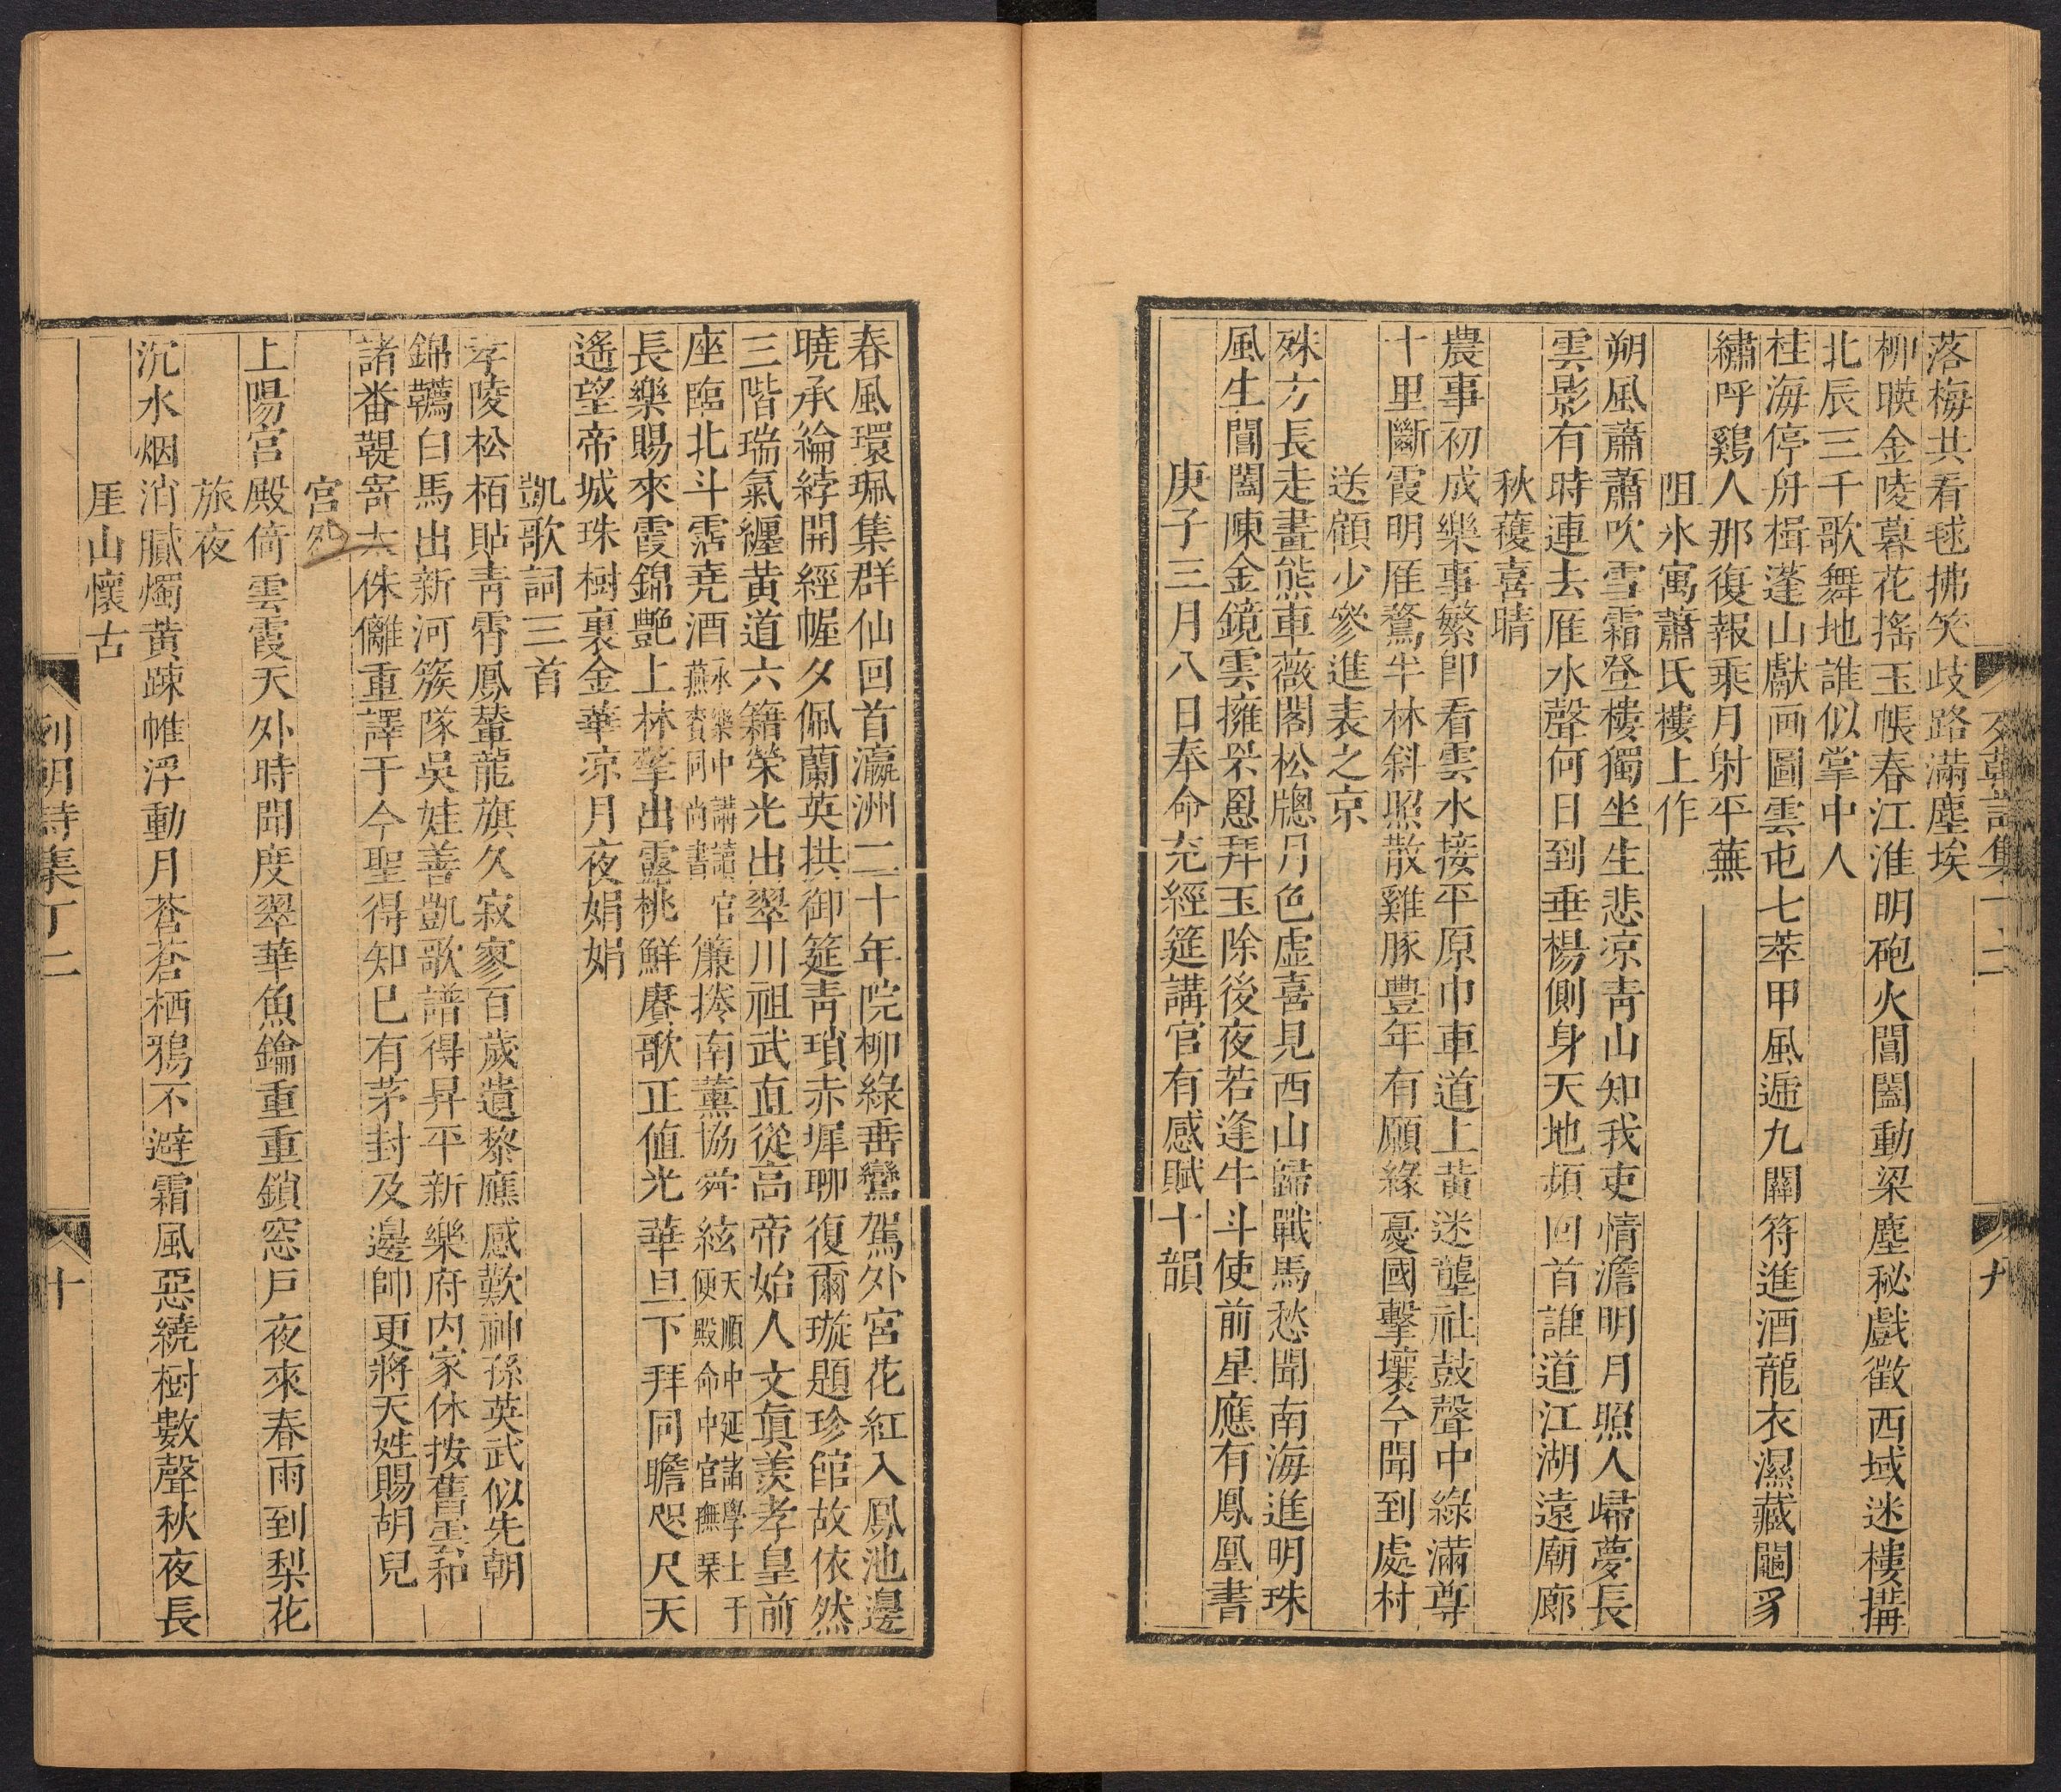 落梅共看毬拂笑歧路滿塵埃
柳暎金陵暮花搖玉帳春江淮明砲火閶闔動梁塵秘戲徵西域迷樓搆
北辰三千歌舞地誰似掌中人
桂海停舟楫蓬山獻画圖雲屯七萃甲風遞九關符進酒龍衣濕藏鬮豸
繡呼鷄人那復報乘月射平蕪
阻氷寓蕭氏樓上作
朔風蕭蕭吹雪霜登樓獨坐生悲凉青山知我吏情澹明月照人歸夢長
雲影有時連去雁水聲何日到垂楊側身天地頻回首誰道江湖遠廟廊
秋穫喜晴
農事初成樂事繁卽看雲水接平原巾車道上黃迷壟社鼓聲中綠滿尊
十里斷霞明雁鶩半林斜照散雞豚豐年有願緣憂國擊壤今聞到處村
送顧少參進表之京
殊方長走畫熊車薇閣松牕月色虛喜見西山歸戰馬愁聞南海進明珠
風生閶闔陳金鏡雲擁罘罳拜玉除後夜若逢牛斗使前星應有鳳凰書
庚子三月八日奉命充經筵講官有感賦十韻
九
春風環珮集群仙回首瀛洲二十年院柳綠垂鸞駕外宮花紅入鳳池邊
曉承綸綍開經幄夕佩蘭英拱御筵青瑣赤墀聊復爾璇題珍館故依然
三階瑞氣纏黃道六籍榮光出翠川祖武直從高帝始人文眞羨孝皇前
座臨北斗霑堯酒永樂中講讀官燕賚同尚書簾捲南薰協舜絃天順中延諸學士于便殿命中官撫琹
長樂賜來霞錦艷上林擎出露桃鮮賡歌正値光華旦下拜同瞻咫尺天
遙望帝城珠樹裏金華凉月夜娟娟
凱歌詞三首
孝陵松栢貼靑霄鳳輦龍旗久寂寥百歲遺黎應感歎神孫英武似先朝
錦韉白馬出新河簇隊吳娃善凱歌譜得昇平新樂府内家休按舊雲和
諸番鞮寄夲侏離重譯于今聖得知已有茅封及邊帥更將天姓賜胡兒
宮怨
上陽宮殿倚雲霞天外時聞度翠華魚鑰重重鎖窓戶夜來春雨到梨花
旅夜
沉水烟消膩燭黃踈帷浮動月蒼蒼栖鴉不避霜風惡繞樹數聲秋夜長
厓山懷古
列朝詩集丁二
十